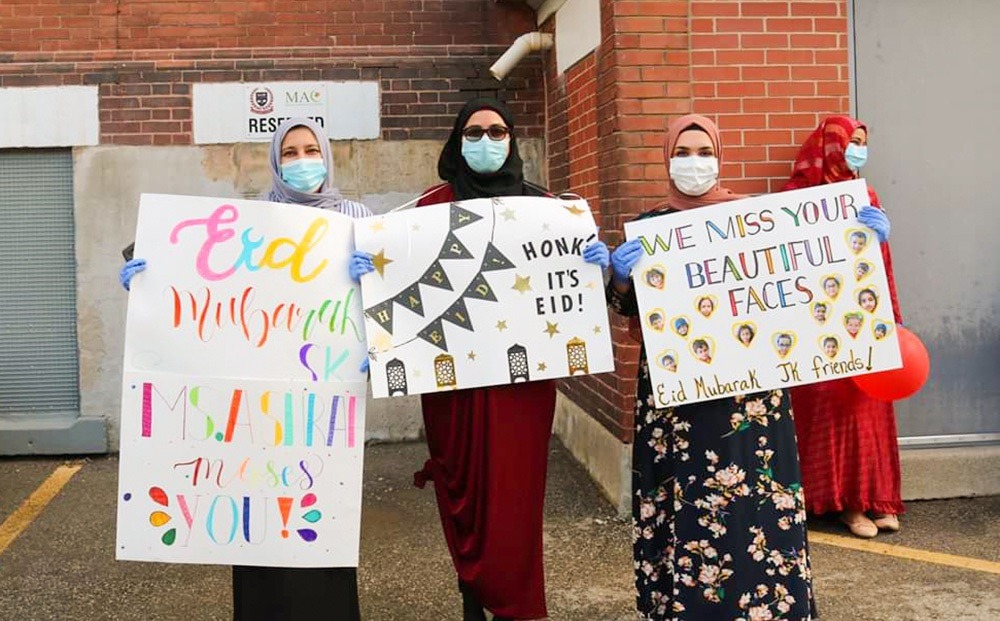 MAC
RESERVED
Eid
Mubarak
SK
MS.
misses
YOU!
HAPPY
EID!
HONK!
IT'S
EID!
WE MISS YOUR
BEAUTIFUL
FACES
Eid Mubarak JK friends!